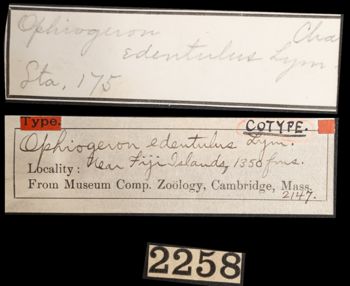 Ophiogeron Cha
edentulus Lym.
Sta. 175
Type. COTYPE.
Ophiogeron edentulus Lym.
Locality: Near Fiji Islands, 1350 fms.
From Museum Comp. Zoölogy, Cambridge, Mass.
2147.
2258